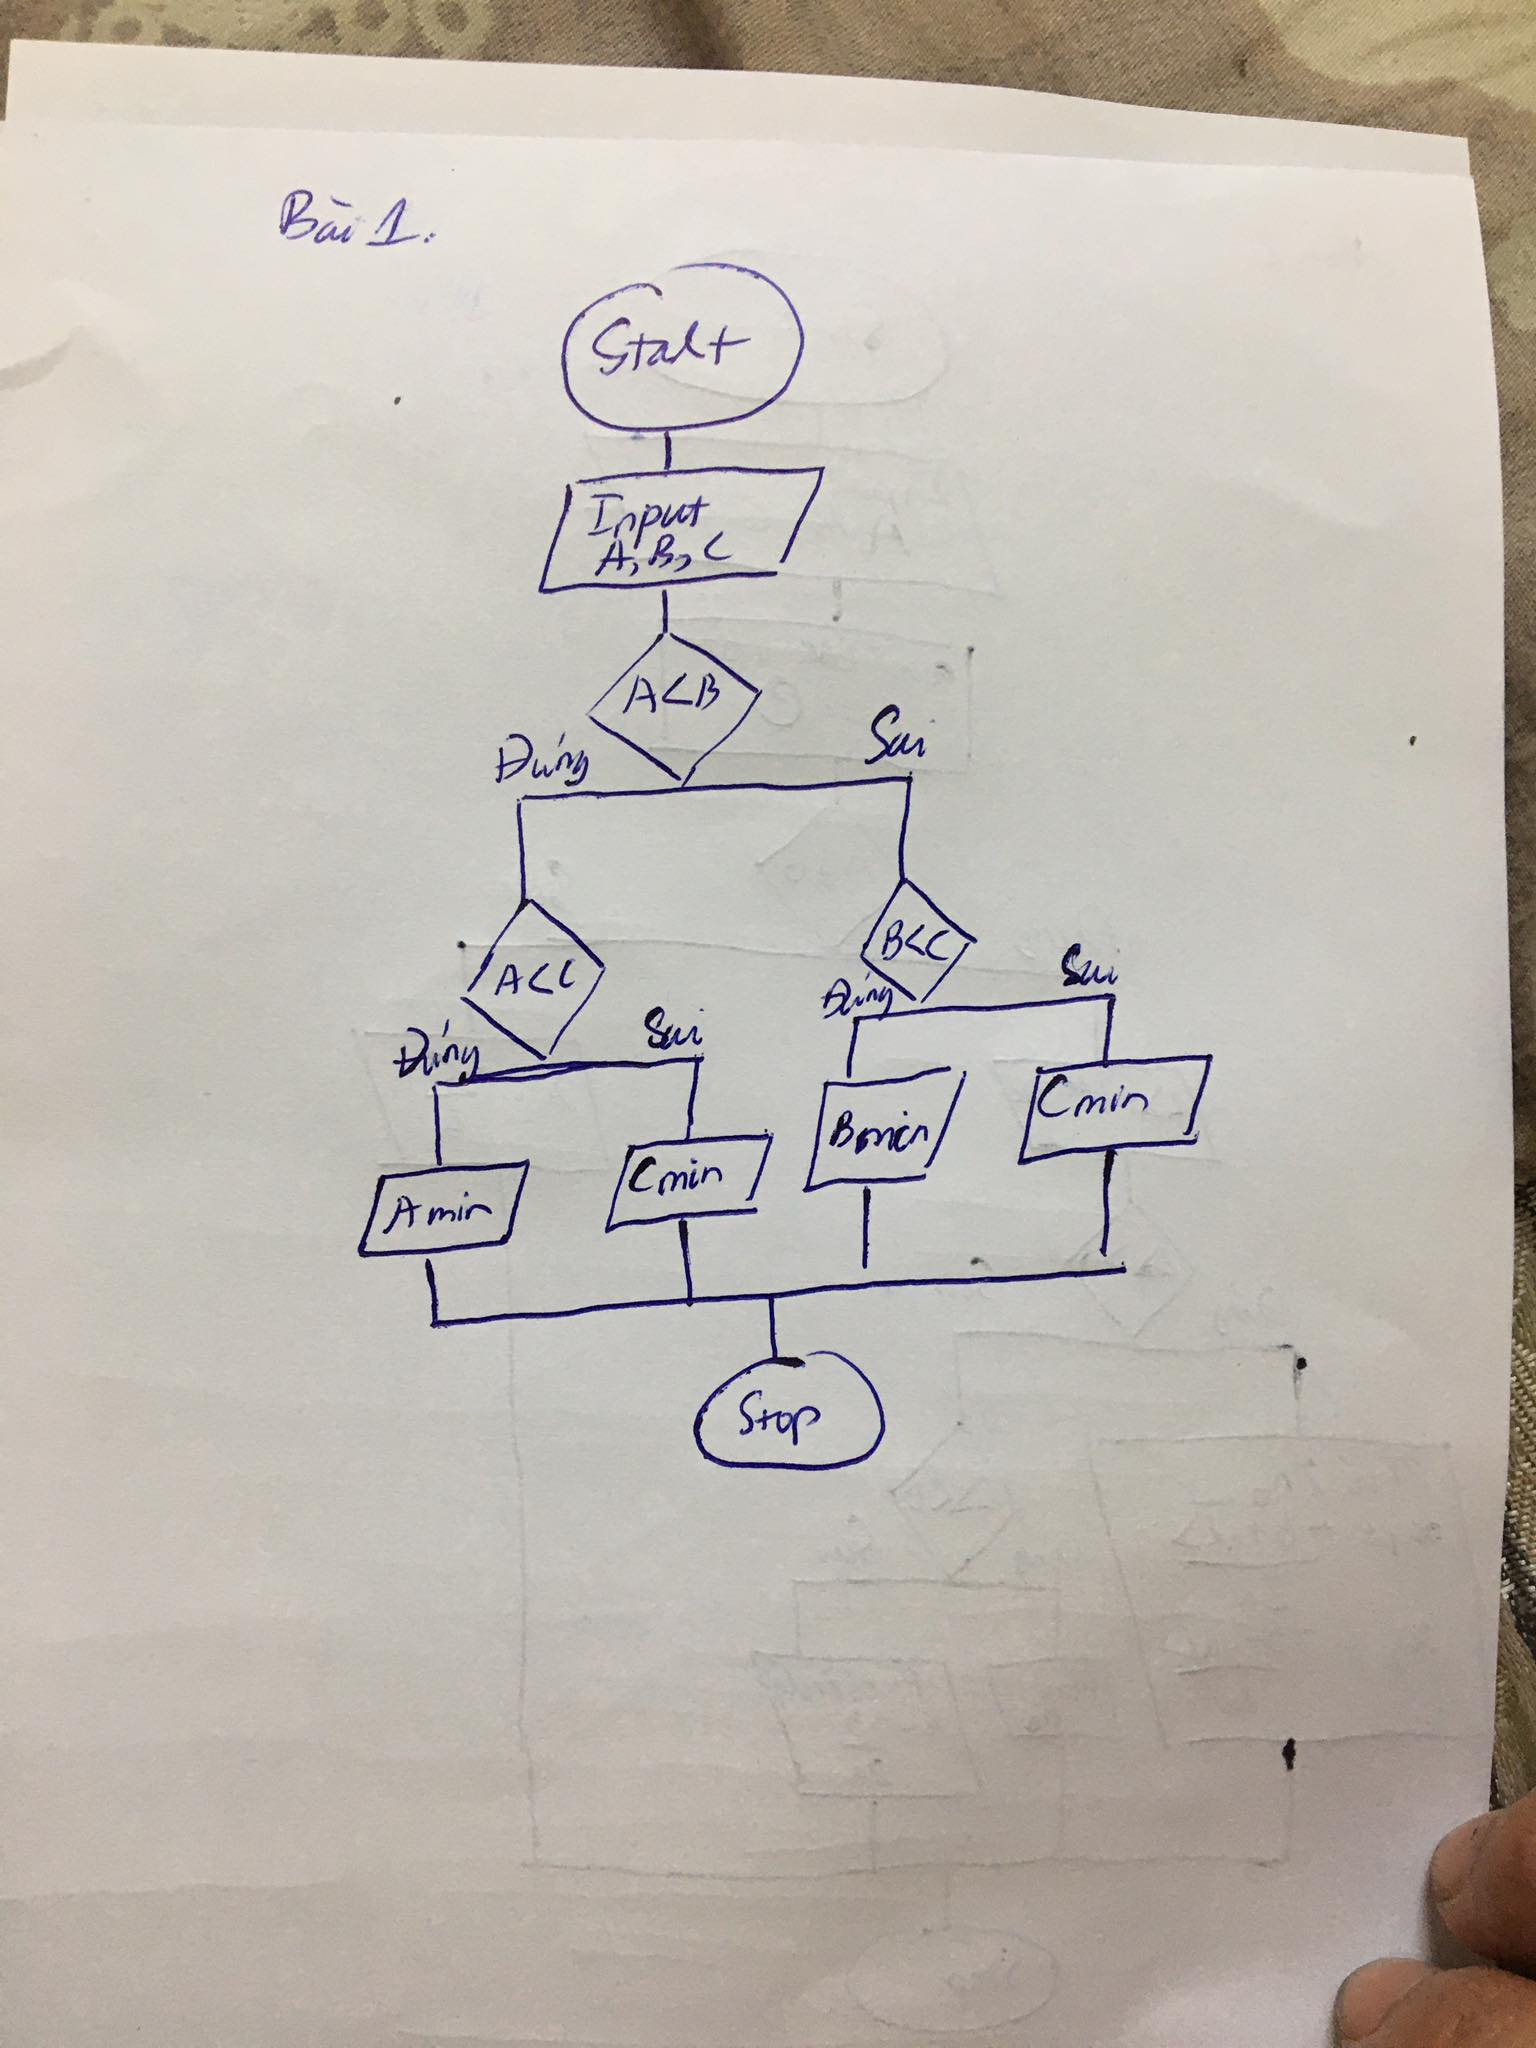 Bài 1.
Start
Input
A, B, C
A<B
Đúng
Sai
A<C
B<C
Đúng
Sai
Đúng
Sai
A min
C min
B min
C min
Stop